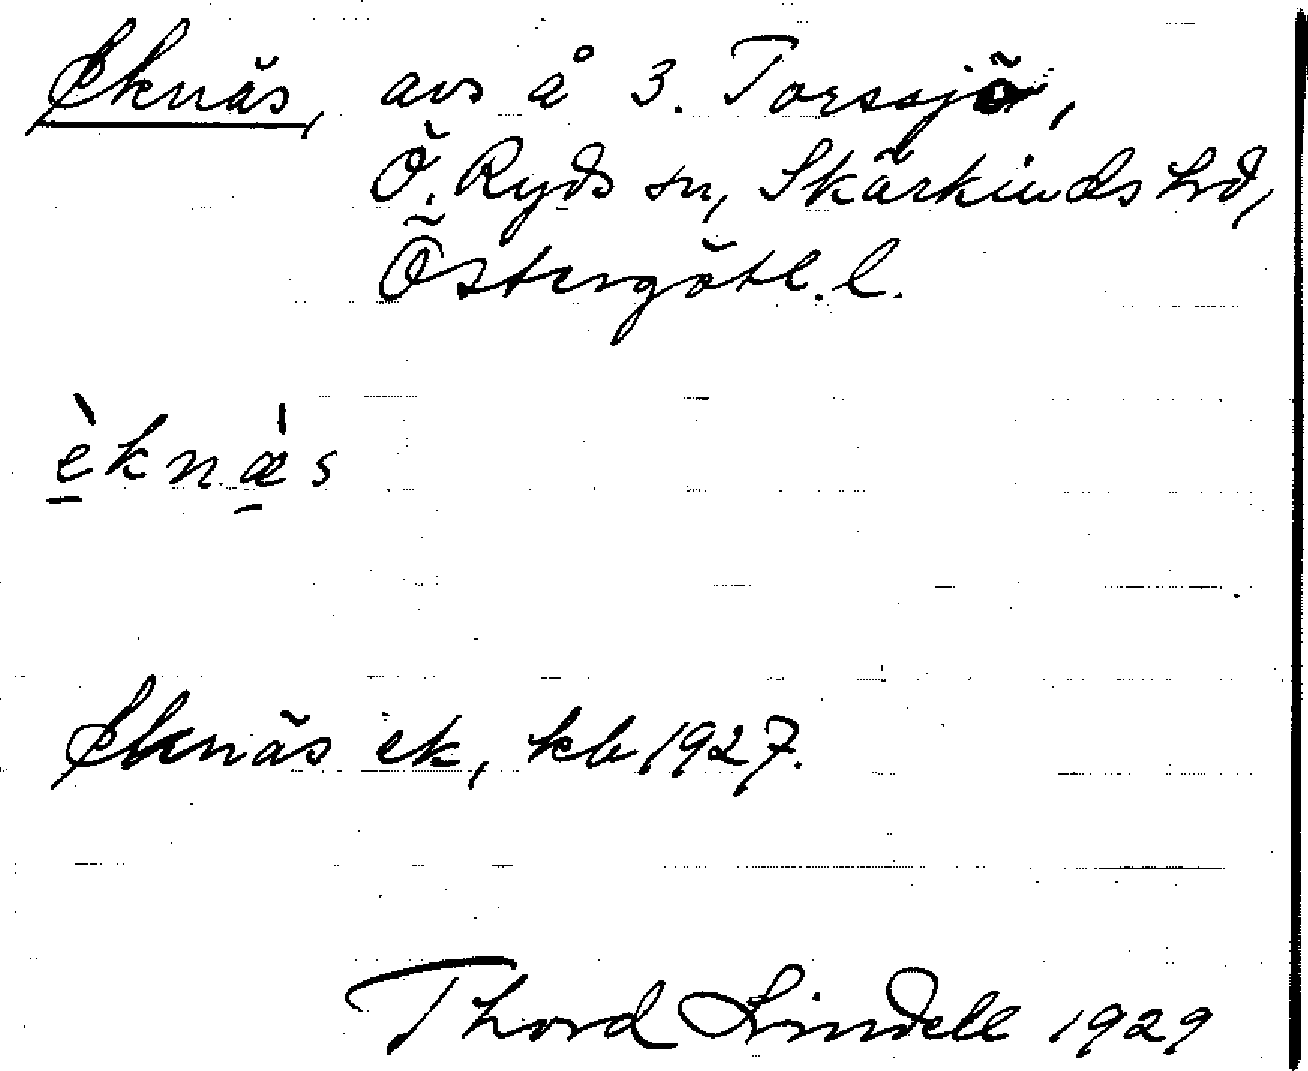 Eknäs, avs å 3. Torssjö,
Ö. Ryds sn, Skärkinds hd,
Östergötl. l.
èknæ̀s
Eknäs ek, kb 1927.
Thord Lindell 1929